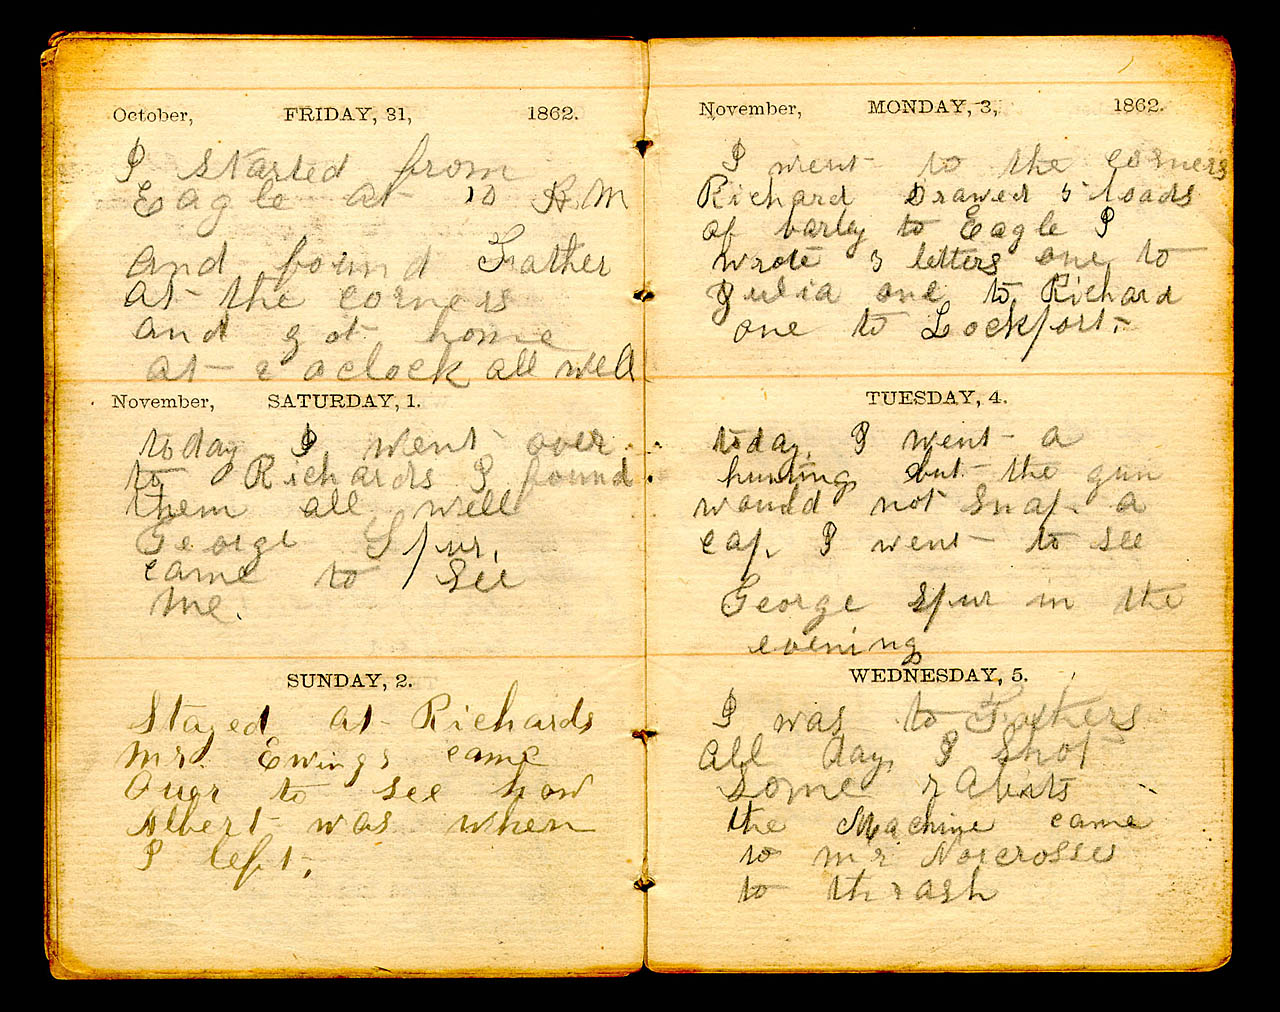 October, FRIDAY, 31, 1862.
I started from
Eagle at 10 A.M
and found Father
at the corners
and got home
at 2 oclock all well
November, SATURDAY, 1.
today I went over
to Richards I found
them all well
George Spur,
came to see
me.
SUNDAY, 2.
Stayed at Richards
Mr. Ewings came
Over to see how
Albert was when
I left.
November, MONDAY, 3, 1862.
I went to the corners
Richard Drawed 5 loads
of barley to Eagle I
wrote 3 letters one to
Julia one to Richard
one to Lockport.
TUESDAY, 4.
today, I went a
hunting but the gun
would not snap a
cap. I went to see
George Spur in the
evening
WEDNESDAY, 5.
I was to Fathers
all day, I shot
some rabits
the Machine came
to Mr Norcrosses
to thrash